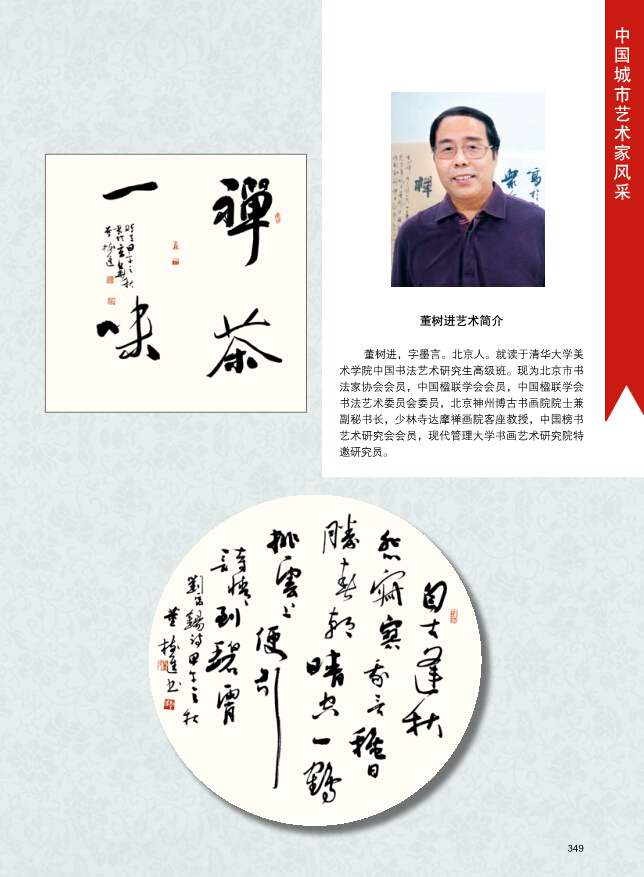 中国城市艺术家风采
董树进艺术简介
董树进，字墨言。北京人。就读于清华大学美
术学院中国书法艺术研究生高级班。现为北京市书
法家协会会员，中国楹联学会会员，中国楹联学会
书法艺术委员会委员，北京神州博古书画院院士兼
副秘书长，少林寺达摩禅画院客座教授，中国榜书
艺术研究会会员，现代管理大学书画艺术研究院特
邀研究员。
禪茶
一味
自古逢秋
悲寂寞我言秋日
勝春朝晴空一鶴
排雲上便引
詩情到碧霄
劉禹錫詩甲午之秋
董樹進書
349